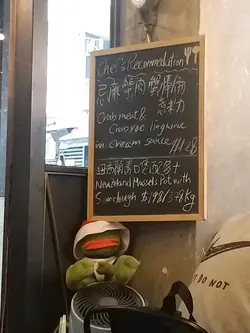 Chef's Recommendation
忌廉蟹肉蟹籽扁
意粉
Crab meat &
Crab roe lingwine
in Cream sauce $128
紐西蘭青口煲配多士
New Zealand Mussels Pot with
Sourdough $198/3/4kg
DO NOT